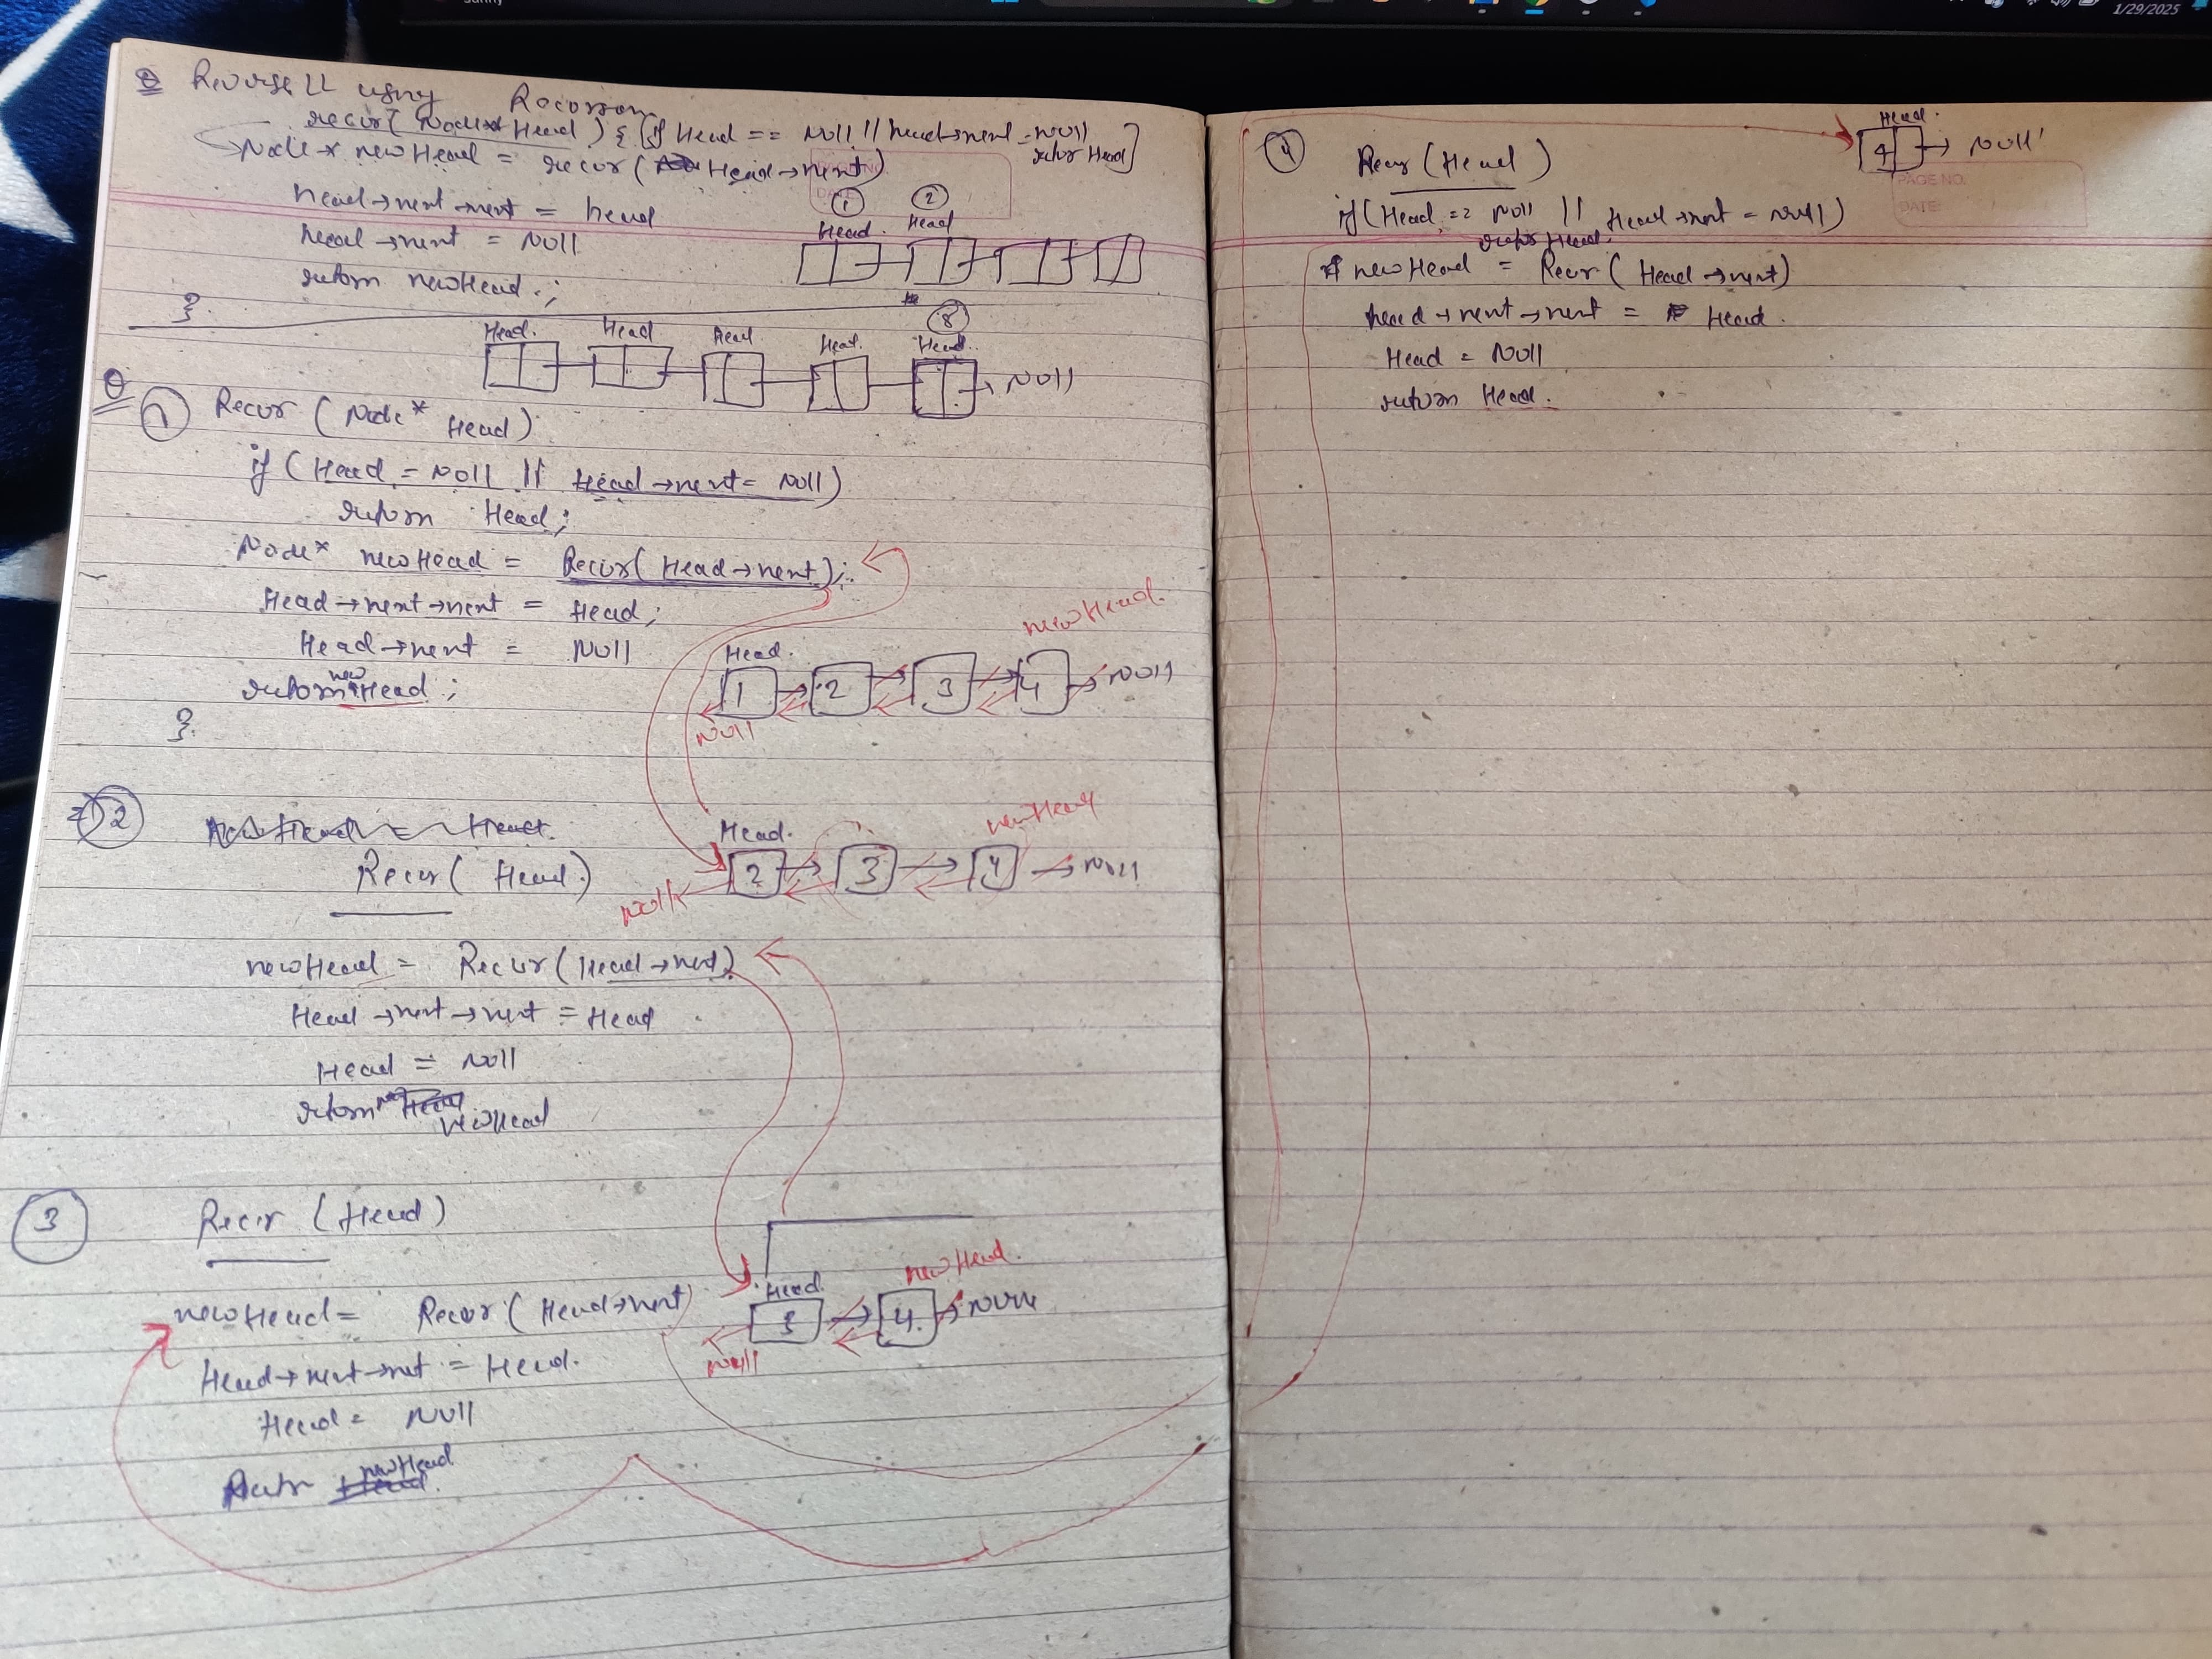 sunny
1/29/2025
Q Reverse LL using Recursion
recur(Node* Head) { [if Head == NULL || head→next = NULL
return Head]
Node* newHead = recur( Head→next)
head→next→next = head
head→next = NULL
return newHead.;
}
① ②
Head. Head
⑧
Head. Head Head Head. Head.
NULL
Q
① Recur (Node* Head)
if (Head = NULL || Head→next = NULL)
return Head;
Node* newHead = Recur(Head→next);
Head→next→next = Head;
Head→next = NULL
return new Head;
}
newHead.
Head.
1 2 3 4 NULL
NULL
② newHead = Head.
Recur( Head.)
newHead
Head.
2 3 4 NULL
NULL
newHead = Recur(Head→next)
Head→next→next = Head
Head = NULL
return newHead
③ Recur (Head)
newHead = Recur(Head→next)
newHead.
Head.
3 4 NULL
NULL
Head→next→next = Head.
Head = NULL
Return newHead
Head.
④ Recur (Head)
Head.
4 NULL
PAGE NO.
DATE:
if (Head == NULL || Head→next = NULL)
return Head;
newHead = Recur( Head→next)
head→next→next = Head.
Head = NULL
return Head.